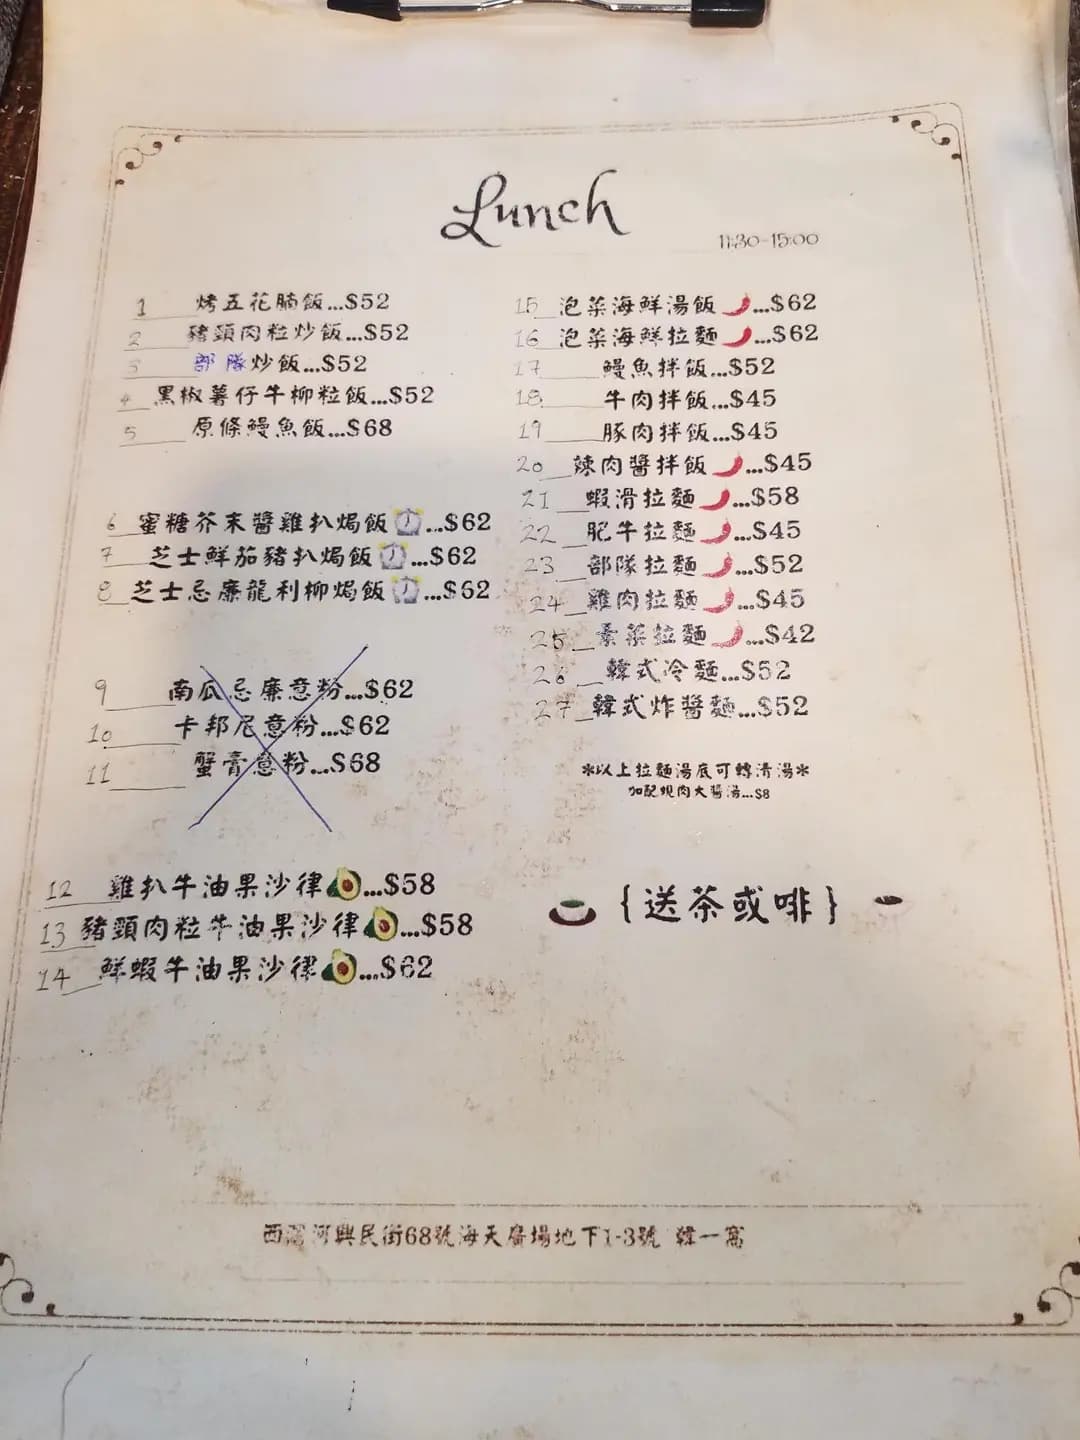 Lunch
11:30-15:00
1 烤五花腩飯...$52
2 豬頸肉粒炒飯...$52
3 部隊炒飯...$52
4 黑椒薯仔牛柳粒飯...$52
5 原條鰻魚飯...$68
6 蜜糖芥末醬雞扒焗飯...$62
7 芝士鮮茄豬扒焗飯...$62
8 芝士忌廉龍利柳焗飯...$62
9 南瓜忌廉意粉...$62
10 卡邦尼意粉...$62
11 蟹膏意粉...$68
12 雞扒牛油果沙律...$58
13 豬頸肉粒牛油果沙律...$58
14 鮮蝦牛油果沙律...$62
15 泡菜海鮮湯飯...$62
16 泡菜海鮮拉麵...$62
17 鰻魚拌飯...$52
18 牛肉拌飯...$45
19 豚肉拌飯...$45
20 辣肉醬拌飯...$45
21 蝦滑拉麵...$58
22 肥牛拉麵...$45
23 部隊拉麵...$52
24 雞肉拉麵...$45
25 素菜拉麵...$42
26 韓式冷麵...$52
27 韓式炸醬麵...$52
*以上拉麵湯底可轉清湯*
加配燒肉大醬湯...$8
{送茶或啡}
西灣河興民街68號海天廣場地下1-3號 韓一窩